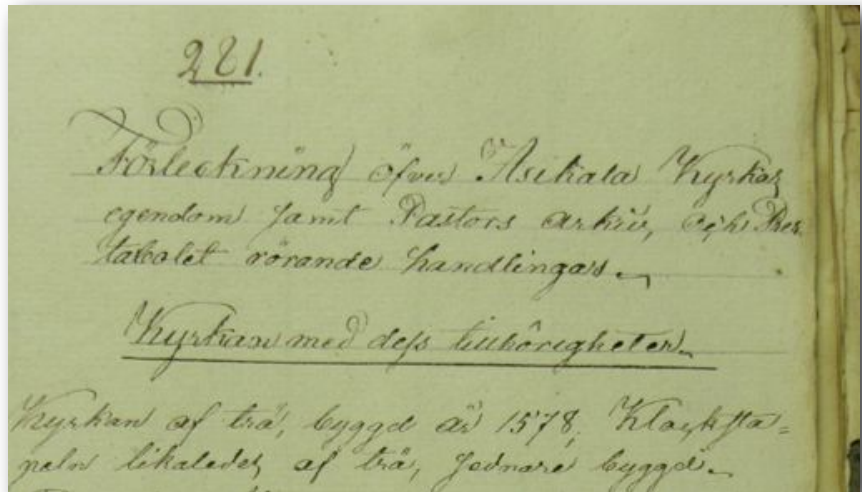 221.
Förteckning öfver Asikala Kyrkas
egendom samt Pastors arkiv, och Bos
tabalet rörande handlingar.
Kyrkan med dess tillhörigheter.
Kyrkan af trä, byggd år 1578, Klocksta=
peln likaledes af trä, sednare byggd.